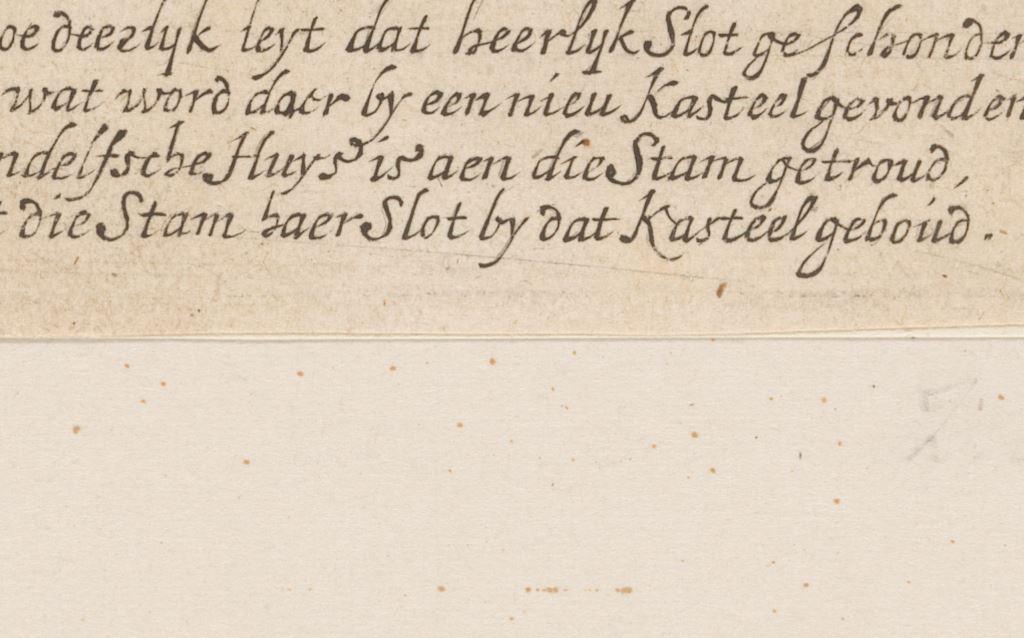 oe deerlyk leyt dat heerlyk Slot geschonden
wat word daer by een nieu Kasteel gevonden
ndelfsche Huys is aen die Stam getroud,
t die Stam haer Slot by dat Kasteel geboud.